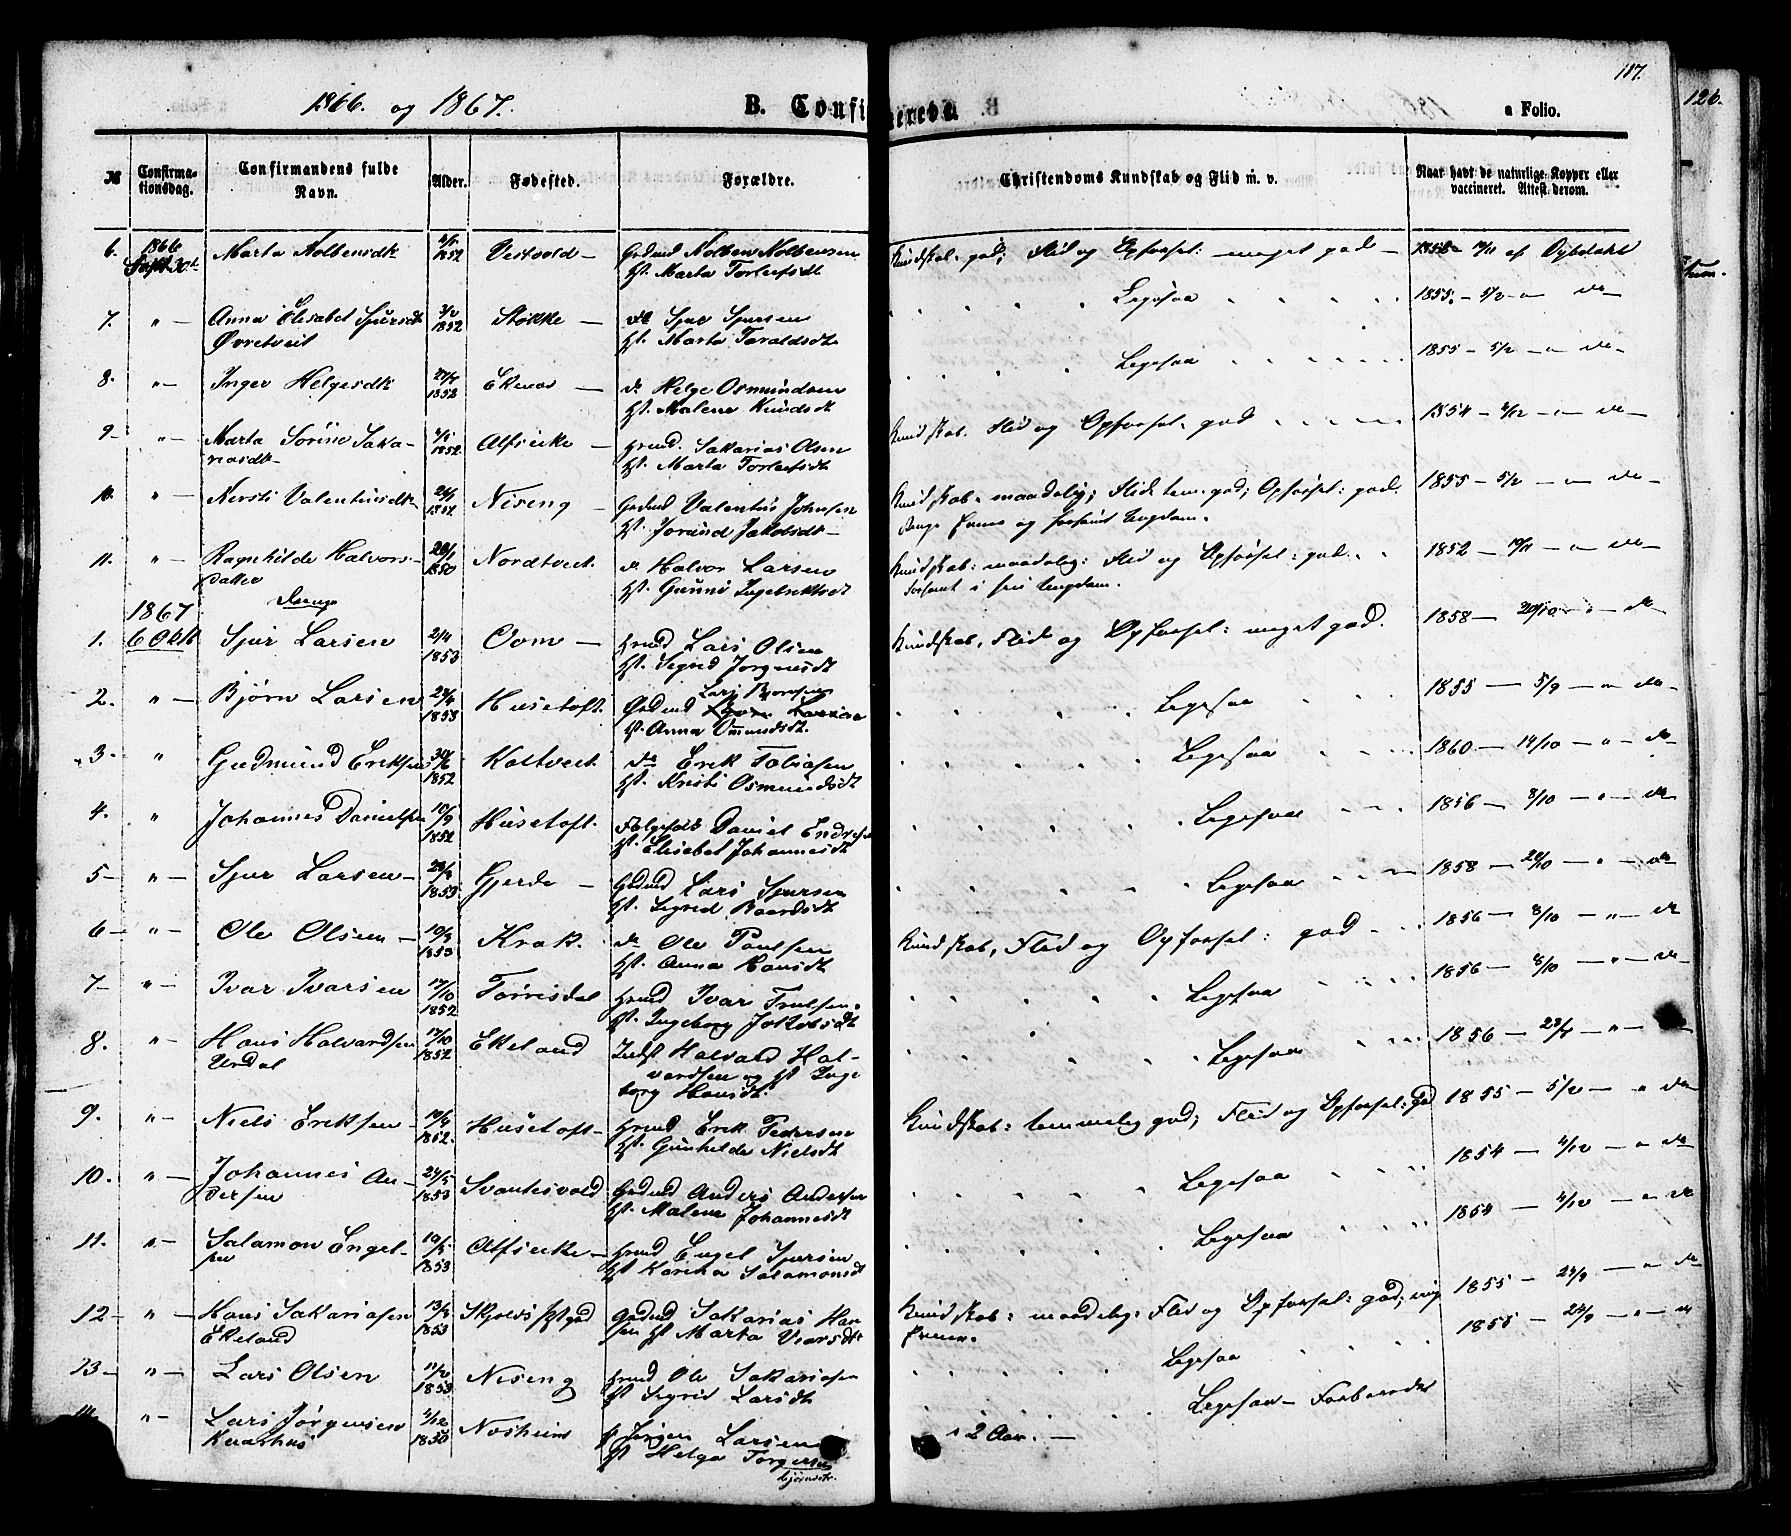 1866. og 1867. B. Confi
erede a Folio. 117.
126.
№ Confirma-tionsdag. Confirmandens fulde Navn. Alder. Fødested. Forældre. Christendoms Kundskab og Flid m. v. Naar havt de naturlige Kopper eller vaccineret. Attest derom.
6. 1866 Sept 30te Marta Kolbensdt 1852 Vestvold Gdmd Kolben Kolbensen
Hst. Marta Torleifsdt Kundskab: god; Flid og Opførsel: meget god 1858 19/11 af Dybdahl
7. " Anna Elisabet Sjursdt Øvretveit 1852 Stokke do Sjur Sjursen
Hst. Marta Taraldsdt Ligesaa 1855 - 5/2 - " do
8. " Inger Helgesdt 1852 Ekenes do Helge Osmundsen
Hst. Malene Knudsdt Ligesaa 1855 - 5/2 - " do
9 " Marta Sorine Sakariasdt 1852 Alfseike Hmd. Sakarias Olsen
Hst. Marta Torleifsdt Kundskab. Flid og Opførsel: god 1854 - 4/12 - " do
10. " Kersti Valentinsdt Niseng Gdmd Valentin Johnsen
Hst. Jorund Jakobsdt Kundskab: maadelig; Flid: tem: god; Opførsel: god.
Ringe Evner og forsømt Ungdom. 1855 - 5/2 - " do
11. " Ragnhilde Halvorsdatter 1850 Nordtveit do Halvor Larsen
Hst. Gunni Ingebriktsdt Kundskab: maadelig: Flid og Opførsel: god.
Forsømt i sin Ungdom. 1852 - 19/11 - " do
1867 Drenge
1. 6 Oktb Sjur Larsen 2/4 1853 Oom Hmd Lars Olsen
Hst. Sigrid Jørgensdt Kundskab, Flid og Opførsel: meget god. 1858 - 20/10 - " do
2. " Bjørn Larsen 1853 Husetoft. Gdmd Lars Bjørnsen
Hst. Anna Omundsdt. Ligesaa 1855 - 5/9 - " do
3. " Gudmund Eriksen 30/6 1852 Koltveit do Erik Tobiasen
Hst. Kristi Osmundsdt Ligesaa 1860 - 14/10 - " do
4. " Johannes Danielsen 10/9 1852 Husetoft. Følgefolk Daniel Endresen
Hst. Elisabet Johannesdt Ligesaa 1856 - 8/10 - " do
5 " Sjur Larsen 1853 Gjerde Gdmd Lars Sjursen
Hst. Sigrid Baardsdt Ligesaa 1858 - 20/10 - " do
6 " Ole Olsen 1853 Krak. do Ole Paulsen
Hst. Anna Hansdt Kundskab, Flid og Opførsel: god 1856 - 8/10 - " do
7 " Ivar Ivarsen 17/10 1852 Torrisdal Hmd Ivar Truelsen.
Hst. Ingeborg Jakobsdt Ligesaa 1856 - 8/10 - " do
8. " Hans Halvardsen Undal 17/10 1852 Ekeland Indst Halvard Halvardsen og Hst Ingeborg Hansdt. Ligesaa 1856 " do
9. " Niels Eriksen 1852. Husetoft Hmd Erik Pedersen
Hst. Gunhilde Nielsdt Kundskab: temmelig god; Flid og Opførsel: god 1855 - 5/2 - " do
10. " Johannes Andersen 24/5 1853 Svantesvold Gdmd Anders Andersen
Hst. Malene Johannesdt Ligesaa 1854 - 4/12 - " do
11. " Salamon Engelsen 19/5 1853 Alfseike Hmd Engel Sjursen
Hst Karina Salamonsdt Ligesaa 1854 - 4/12 - " do
12 " Hans Sakariasen Ekeland 1853 Skjolds Pgd Gdmd Sakarias Hansen Hst Marta Ivarsdt Kundskab: maadelig: Flid og Opførsel: god; ring
Evner. 1855 - 24/9 - " do
13 " Lars Olsen 11/2 1853 Niseng Hmd Ole Sakariasen
Hst Sigrid Larsdt Ligesaa 1855 - 24/9 - " do
14 " Lars Jørgensen 4/12 1850 Nesheim Jørgen Larsen
Hst Helga Torgersen
bjørnsdtr. Ligesaa Forberedet
i 2 Aar.